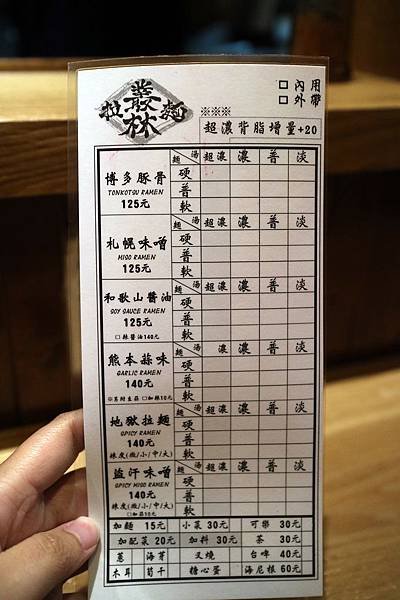 叢林拉麵
□內用
□外帶
※※※
超濃背脂增量+20
博多豚骨
TONKOTSU RAMEN
125元
麵 湯 超濃 濃 普 淡
硬
普
軟
札幌味噌
MISO RAMEN
125元
麵 湯 超濃 濃 普 淡
硬
普
軟
和歌山醬油
SOY SAUCE RAMEN
125元
□辣醬油140元
麵 湯 超濃 濃 普 淡
硬
普
軟
熊本蒜味
GARLIC RAMEN
140元
□加辣10元
麵 湯 超濃 濃 普 淡
硬
普
軟
地獄拉麵
SPICY RAMEN
140元
辣度(微/小/中/大)
麵 湯 超濃 濃 普 淡
硬
普
軟
盜汗味噌
SPICY MISO RAMEN
140元
辣度(微/小/中/大)
□加蒜10元
麵 湯 超濃 濃 普 淡
硬
普
軟
加麵 15元 小菜 30元 可樂 30元
加配菜 20元 加料 30元 茶 30元
蔥 海芽 叉燒 台啤 40元
木耳 筍干 糖心蛋 海尼根 60元